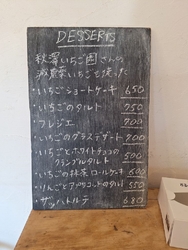 DESSERTS
秋澤いちご園さんの
減農薬いちごを使った
・いちごショートケーキ 650
・いちごのタルト 750
・フレジエ 700
・いちごのグラスデザート 700
・いちごとホワイトチョコの
クランブルタルト 500
・いちごの抹茶ロールケーキ 600
・りんごとアプリコットのタルト 550
・ザッハトルテ 680